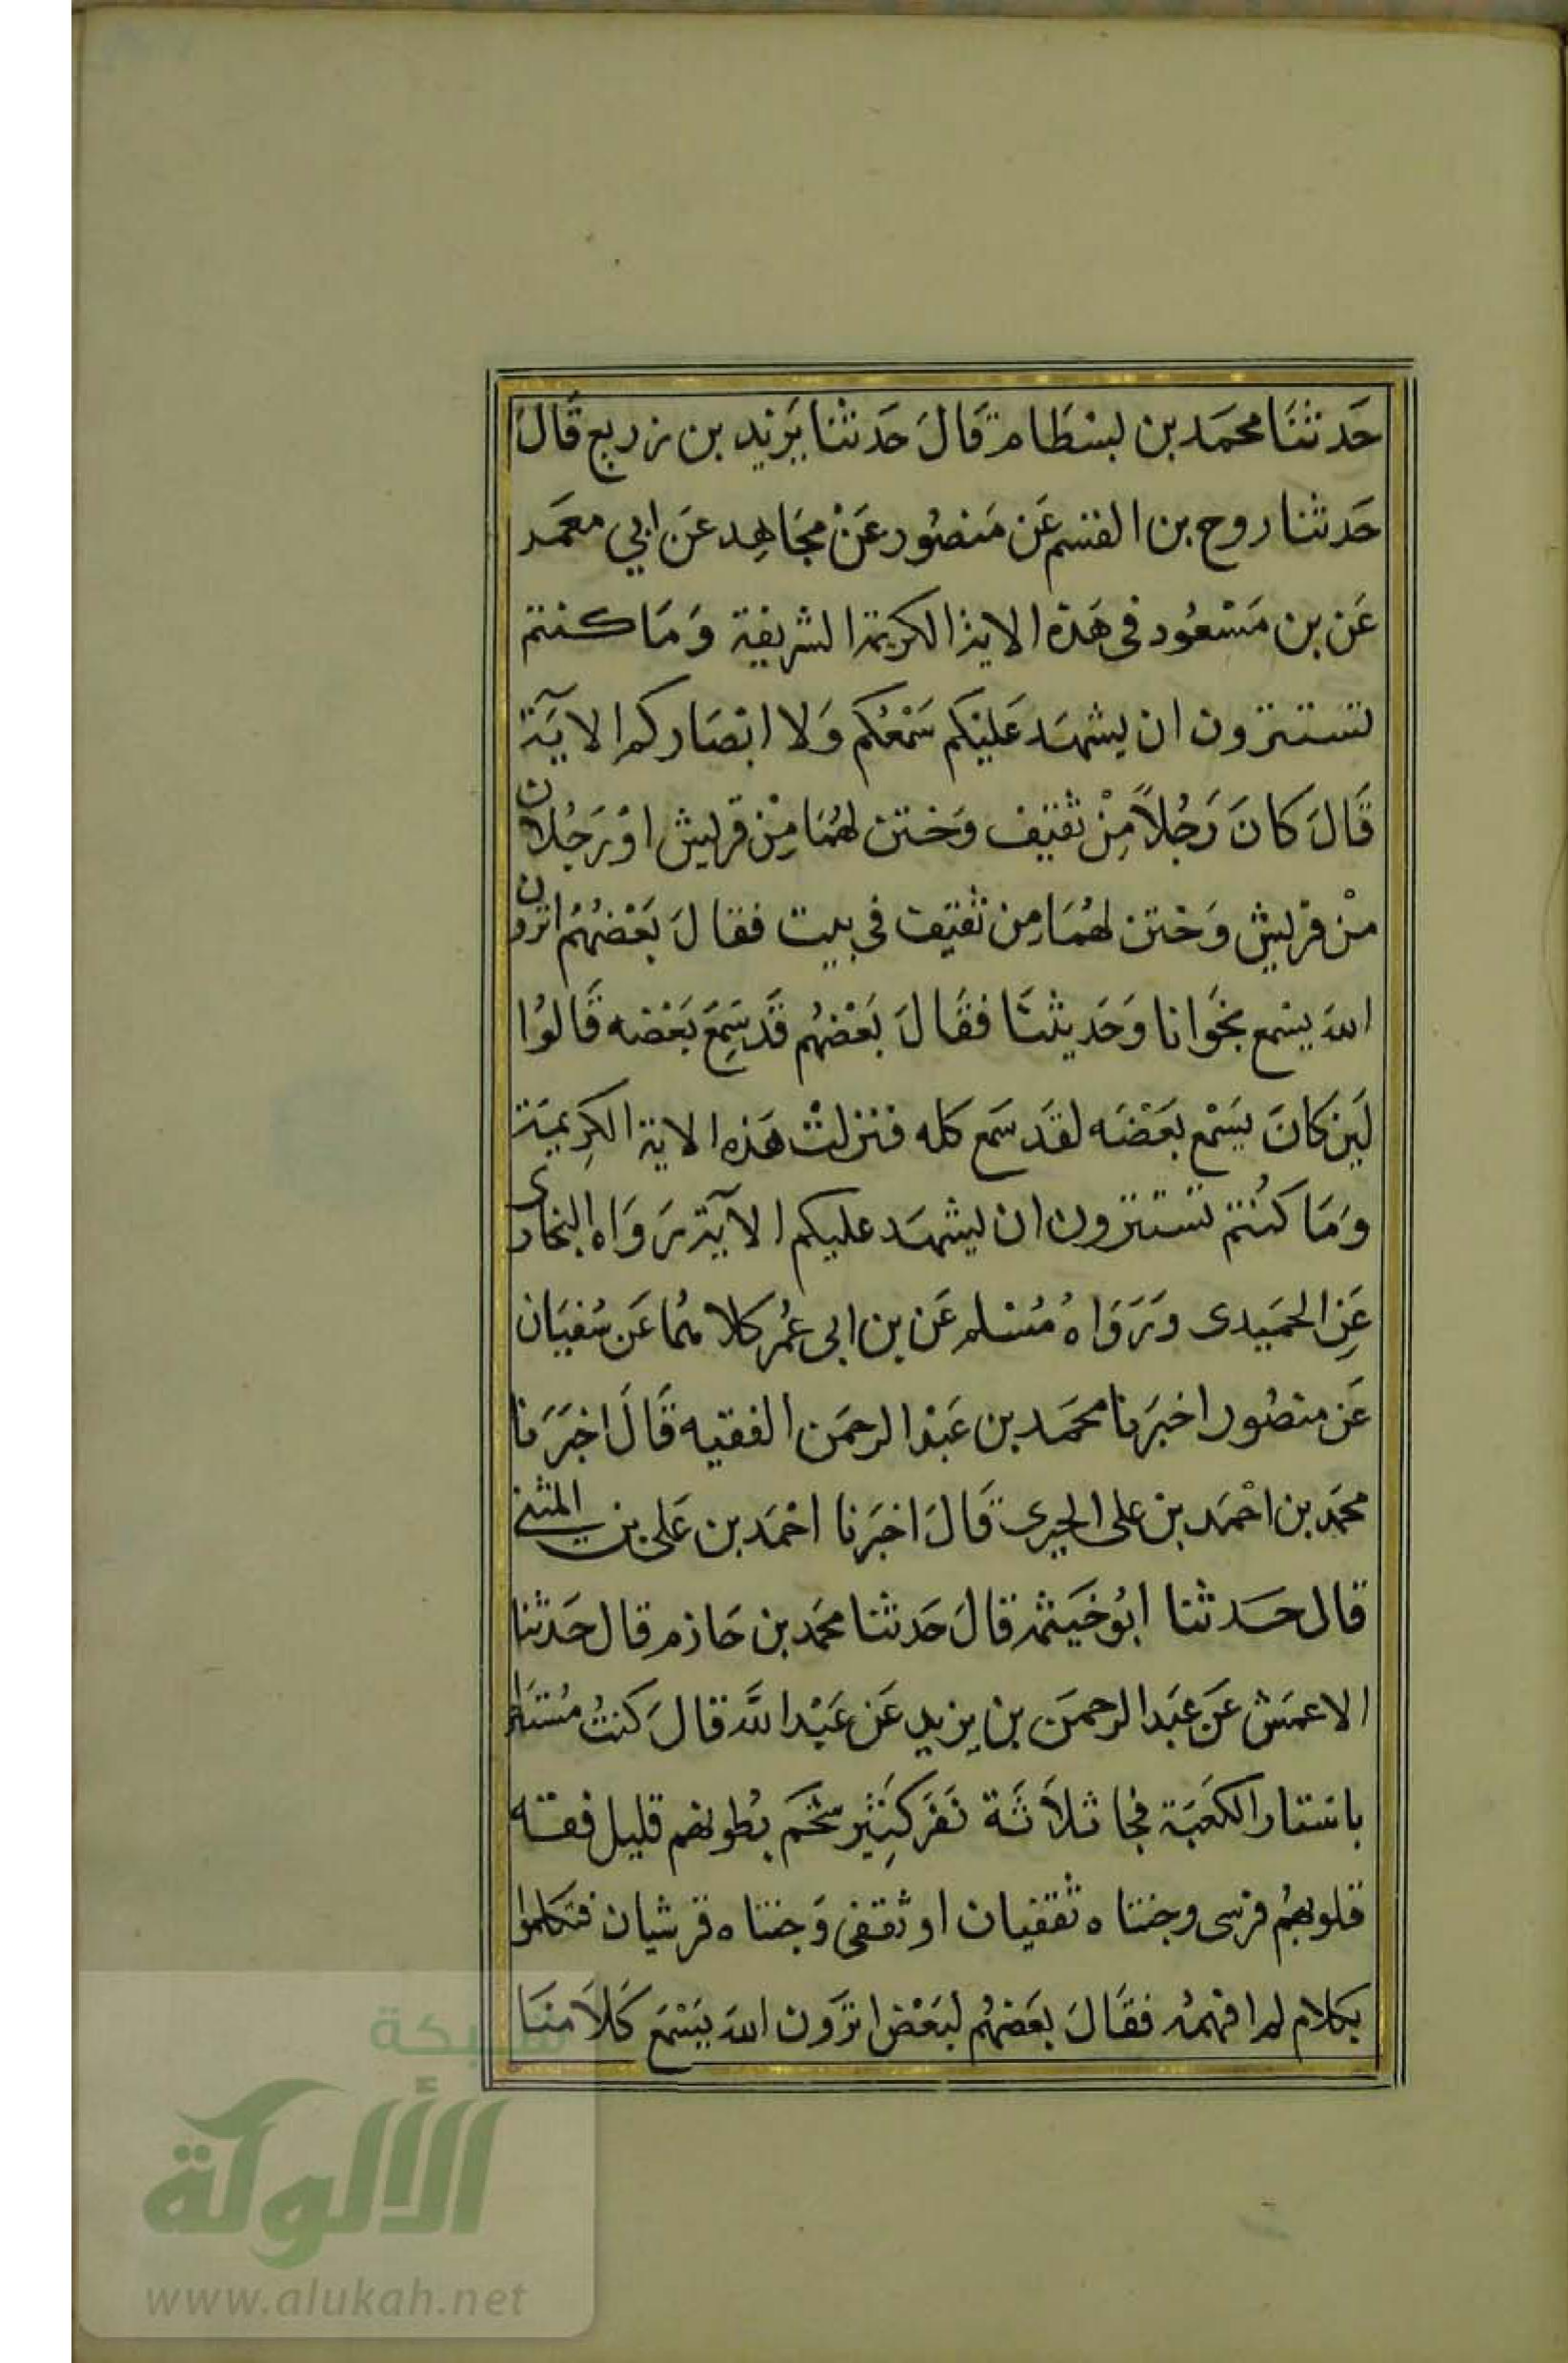 حَدثنَا محمَد بن لبسْطَام قَالَ حَدثنا يَزيد بن زريع قَالَ
حَدثنا روح بن القسم عَن مَنصُور عَنْ مجَاهِد عَن ابي معمَر
عَن بن مَسْعُود في هَذه الاية الكريمة الشريفة وَمَا كنتم
تستترون ان يشهَد عَليْكم سَمْعُكم وَلا ابْصَاركم الايَة
قَالَ كانَ رَجُلاً مِنْ ثقيف وَختن لهُمَا مِنْ قريش اوْ رَجُلان
منْ قريش وَختن لهُمَا مِن ثقيف في بيت فقالَ بَعْضهُمُ اترون
اللهَ يسْمع نجْوَانا وَحَديثنَا فقَالَ بَعْضهُم قَد سَمِعَ بَعْضه قَالوُا
لَين كانَ يَسْمع بَعَضَه لقَد سَمع كله فنزلتْ هَذه الاية الكِريمَة
وَمَا كنُتم تستترون ان يشهَد عليكم الآيَة رَوَاه البخارى
عَنِ الحمَيدى وَرَوَاهُ مُسْلم عَن بن ابى عُمَر كلاهُما عَن سُفيَان
عَن منصُور اخبَرنا محمَد بن عَبْد الرحمَن الفقيه قَالَ اخبَرَنا
محمَد بن احْمَد بن على الحيرى قَالَ اخبَرنا احْمَد بن عَلى بن المثنى
قال حَدثنا ابُو خيَثمة قالَ حَدثنا محمَد بن حَازم قال حَدثنا
الاعمَش عَن عبَد الرحمَن بن يزيد عَن عَبْد اللَّه قالَ كنتُ مُستترا
باستار الكعَبَة فجا ثلاَثَة نَفَر كِثَير شَحَم بُطونهم قليل فقه
قلوبهُم قرشى وختناه ثقفيان او ثقفى وَختناه قرشيان فتكلموا
بكلام لم افهمهُ فقَالَ بعَضهُم لبَعْض اترَون اللهَ يَسْمَع كَلاَمنَا
شبكة
الألوكة
www.alukah.net